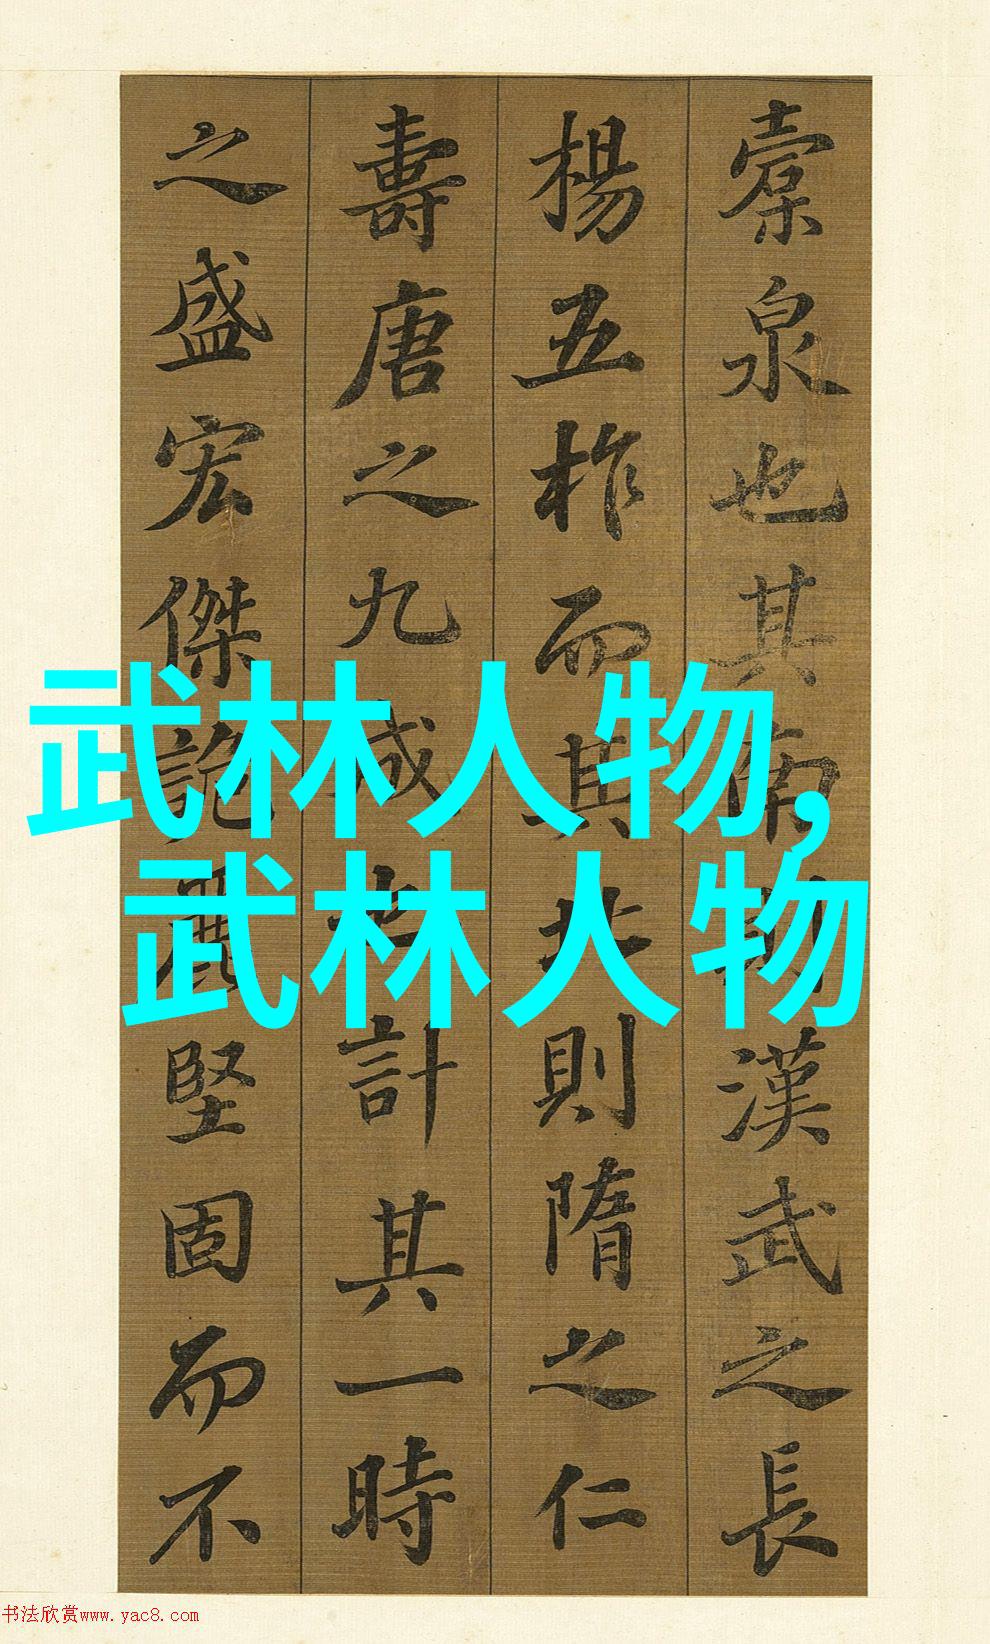 槖泉也其南則漢武之長
楊五柞而其北則隋之仁
壽唐之九成也計其一時
之盛宏傑詭麗堅固而不
武林人物,
武林人物
书法欣赏www.yac8.com